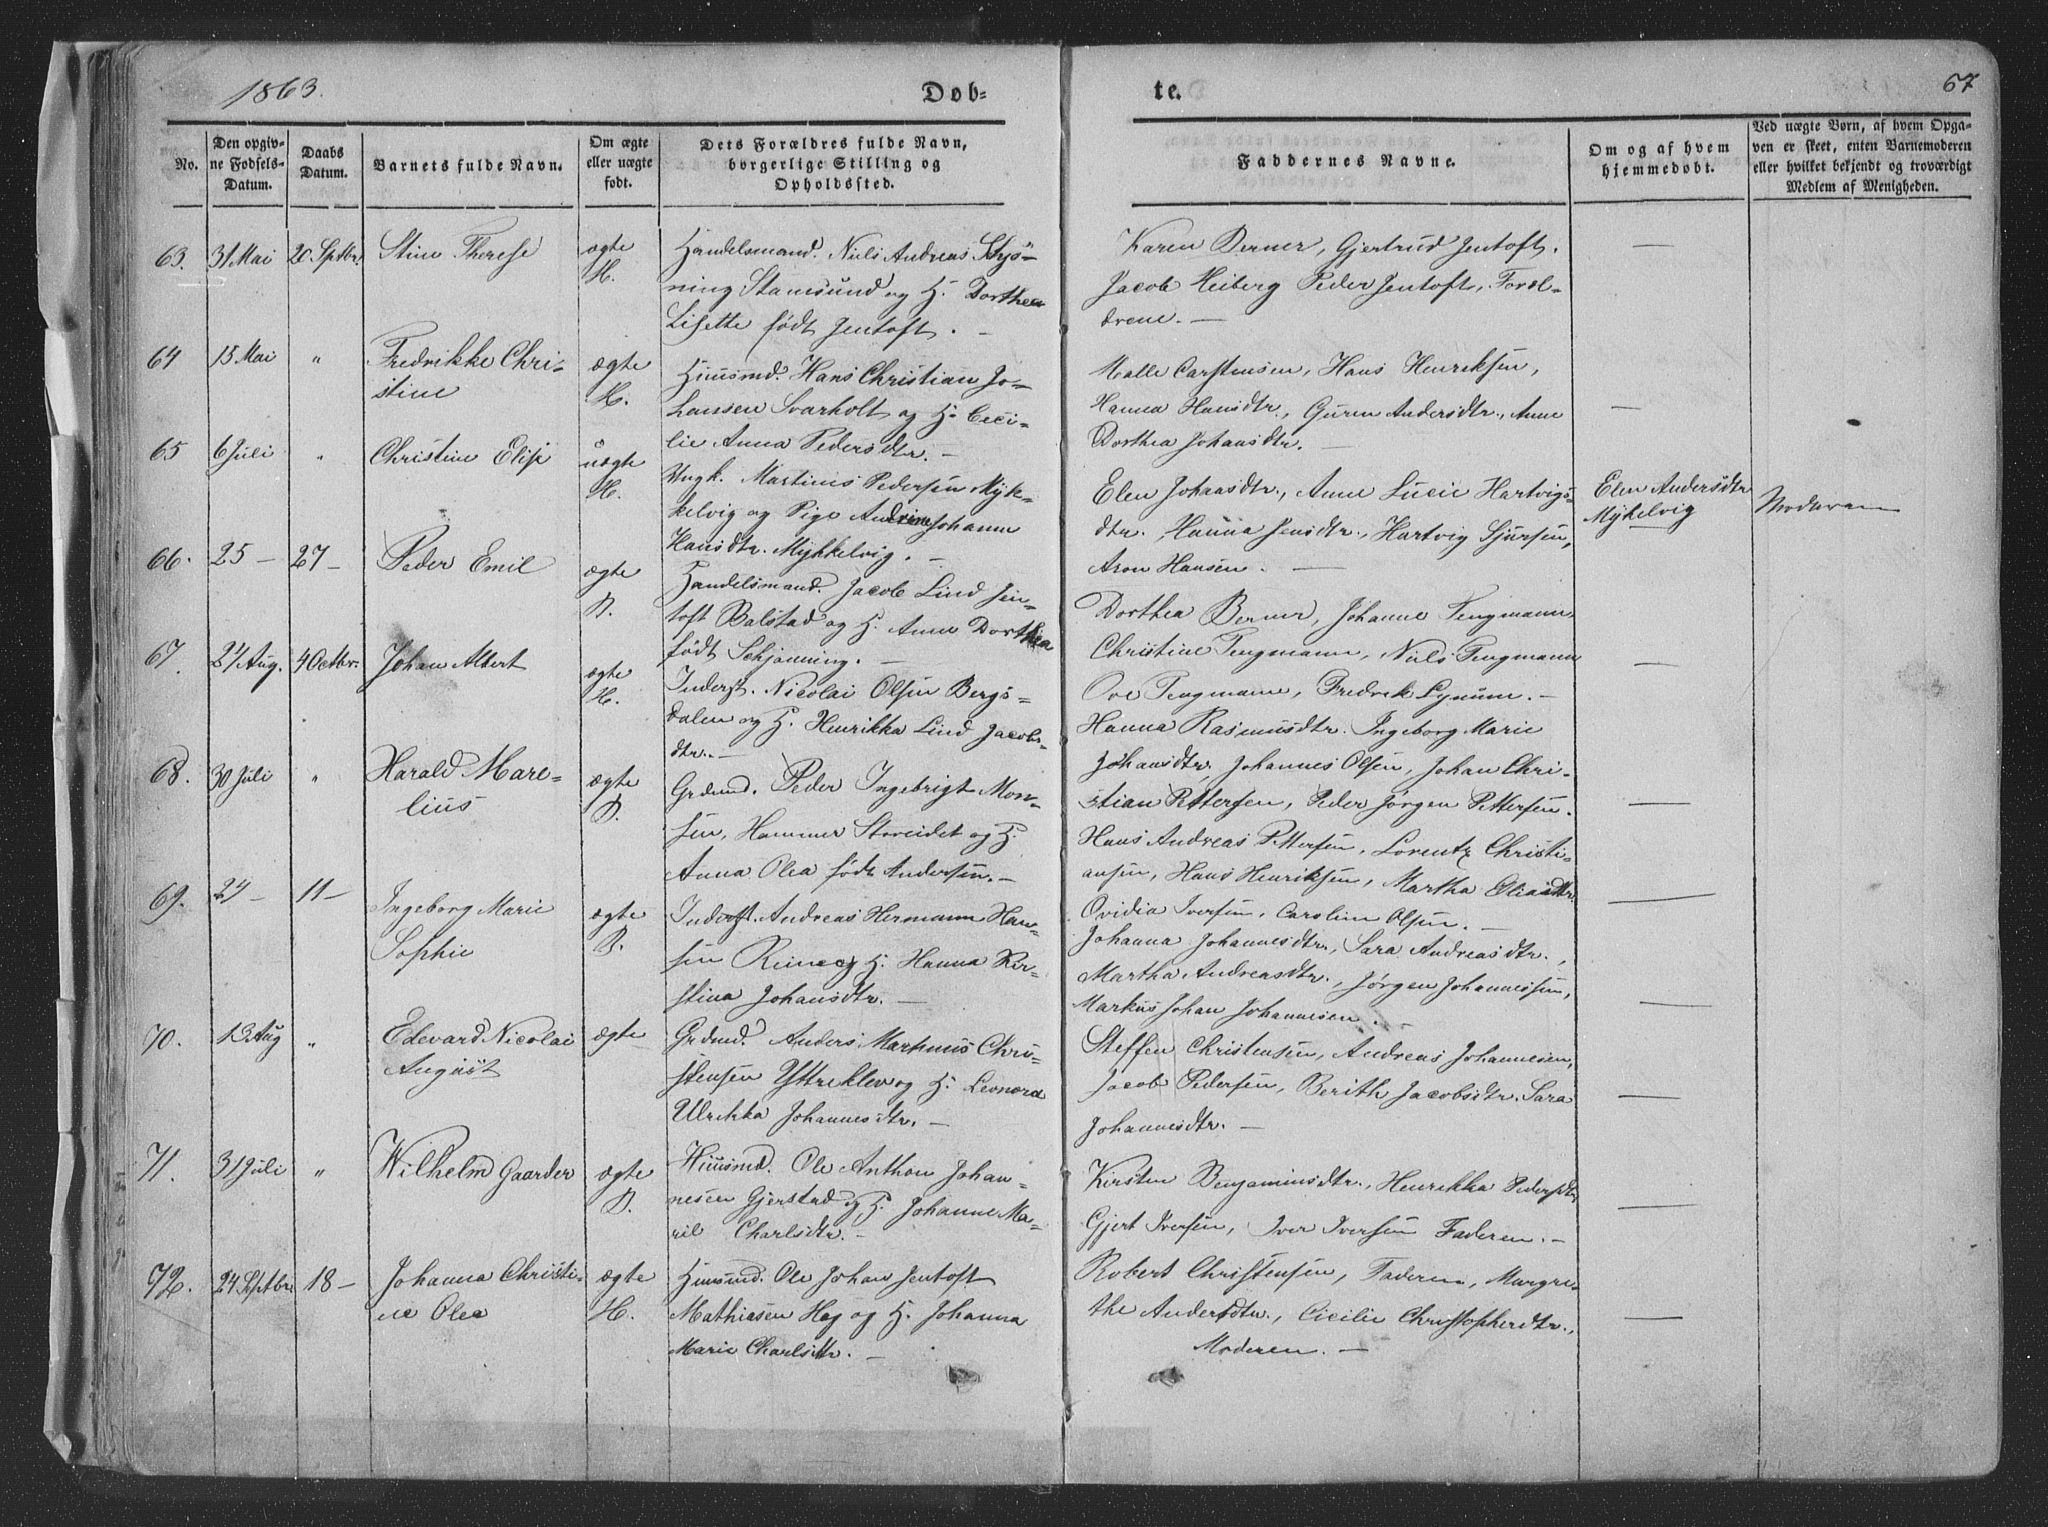 1863.
Døb-
te.
67
No.
Den opgiv-
ne Fødsels-
Datum.
Daabs
Datum.
Barnets fulde Navn.
Om ægte
eller uægte
født.
Dets Forældres fulde Navn,
borgerlige Stilling og
Opholdssted.
Faddernes Navne.
Om og af hvem
hjemmedøbt.
Ved uægte Børn, af hvem Opga-
ven er skeet, enten Barnemoderen
eller hvilket bekjendt og troværdigt
Medlem af Menigheden.
63. 31 Mai 20 Sptbr. Stine Therese ægte
H.
Handelsmand. Niels Andreas Schjø-
ning Stamsund og H. Dorthea
Lisette født Jentoft. —
Karen Berner, Gjertrud Jentoft.
Jacob Heiberg Peder Jentoft, Foræl-
drene. —
—
64 15 Mai " Fredrikke Chri-
stine
ægte
H.
Huusmd. Hans Christian Jo-
hansen Svarholt og H. Ceci-
lie Anna Pedersdtr. —
Malle Carstensen, Hans Henriksen,
Hanna Hansdtr., Guren Andersdtr., Anne
Dorthea Johansdtr. —
—
65 6 Juli " Christine Elise uægte
H.
Ungk. Martinus Pedersen Myk-
kelvig og Pige Andrine Johanne
Hansdtr. Mykkelvig. —
Elen Johansdtr., Anne Lucie Hartvigs-
dtr., Hanna Jensdtr., Hartvig Sjursen,
Aron Hansen. —
Elen Andersdtr
Mykelvig
Moderen
66. 25 — 27 — Peder Emil ægte
D.
Handelsmand. Jacob Lind Jen-
toft Balstad og H. Anne Dorthea
født Schjønning. —
Dorthea Berner, Johanne Tengmann,
Christine Tengmann, Niels Tengmann
Ove Tengmann, Fredrik Lynum. —
—
67. 24 Aug. 4 Octbr. Johan Albert ægte
H.
Inderst. Nicolai Olsen Bergs-
dalen og H. Henrikka Lind Jacobs-
dtr. —
Hanna Rasmusdtr. Ingeborg Marie
Johansdtr, Johannes Olsen, Johan Chri-
stian Pettersen, Peder Jørgen Pettersen.
—
68. 30 Juli " Harald Mare-
lius
ægte
D.
Grdmd. Peder Ingebrigt Mon-
sen, Hammer Storeidet og H.
Anna Olea født Andersen. —
Hans Andreas Pettersen, Lorentz Christi-
ansen, Hans Henriksen, Martha Eliasdtr.
Ovidia Iversen, Caroline Olsen. —
—
69. 24 — 11 — Ingeborg Marie
Sophie
ægte
D.
Inderst. Andreas Hermann Han-
sen Reine og H. Hanna Kir-
stina Johansdtr. —
Johanna Johannesdtr, Sara Andreasdtr.,
Martha Andreasdtr., Jørgen Johannessen,
Markus Johan Johannesen. —
—
70. 13 Aug " Edevard Nicolai
August
ægte
Grdmd. Anders Martinus Chri-
stensen Yttreklev og H. Leonora
Ulrikka Johannesdtr. —
Steffen Christensen, Andreas Johannesen,
Jacob Pedersen, Berith Jacobsdtr. Sara
Johannesdtr. —
—
71. 31 Juli " Wilhelm Gaarder ægte
D.
Huusmd. Ole Anthon Johan-
nesen Gjerstad og H. Johanne Ma-
ril Charlsdtr. —
Kirsten Benjaminsdtr., Henrikka Pedersdtr
Gjert Iversen, Iver Iversen Faderen. —
—
72. 24 Septbr. 18 — Johanna Christi-
ne Olea
ægte
H.
Huusmd. Ole Johan Jentoft
Mathiasen Hag og H. Johanna
Marie Charlsdtr. —
Robert Christensen, Faderen, Margre-
the Andersdtr., Cicilie Christopherdtr.,
Moderen. —
—